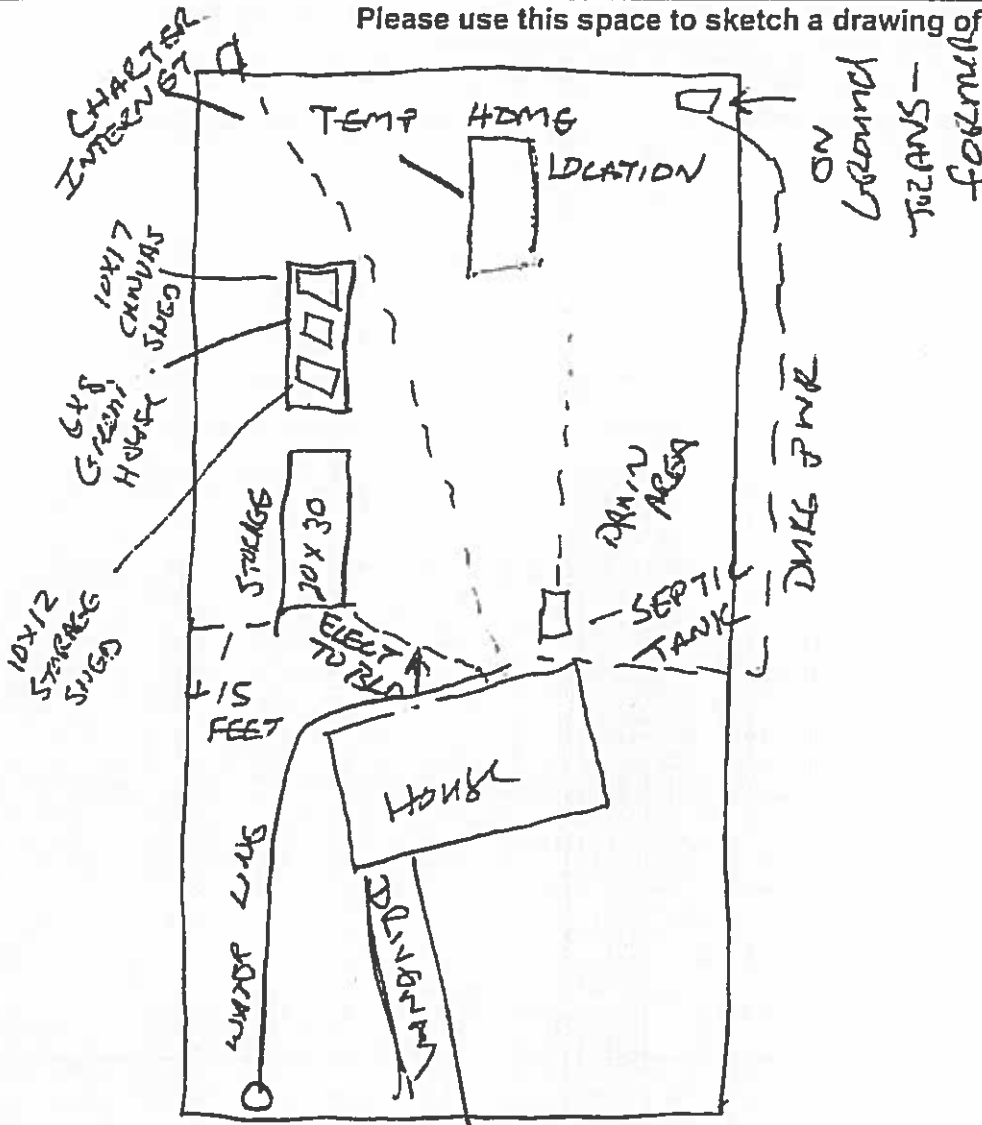 Please use this space to sketch a drawing of
CHARTER
INTERNET
TEMP HOME
LOCATION
ON
GROUND
TRANS-
FORMER
10X17
CANVAS
SHED
6X8
GREEN
HOUSE
10X12
STORAGE
SHED
STORAGE
20X30
DRAIN
AREA
DUKE PWR
SEPTIC
TANK
ELECT
TO BLD
15
FEET
HOUSE
WATER LINE
DRIVEWAY